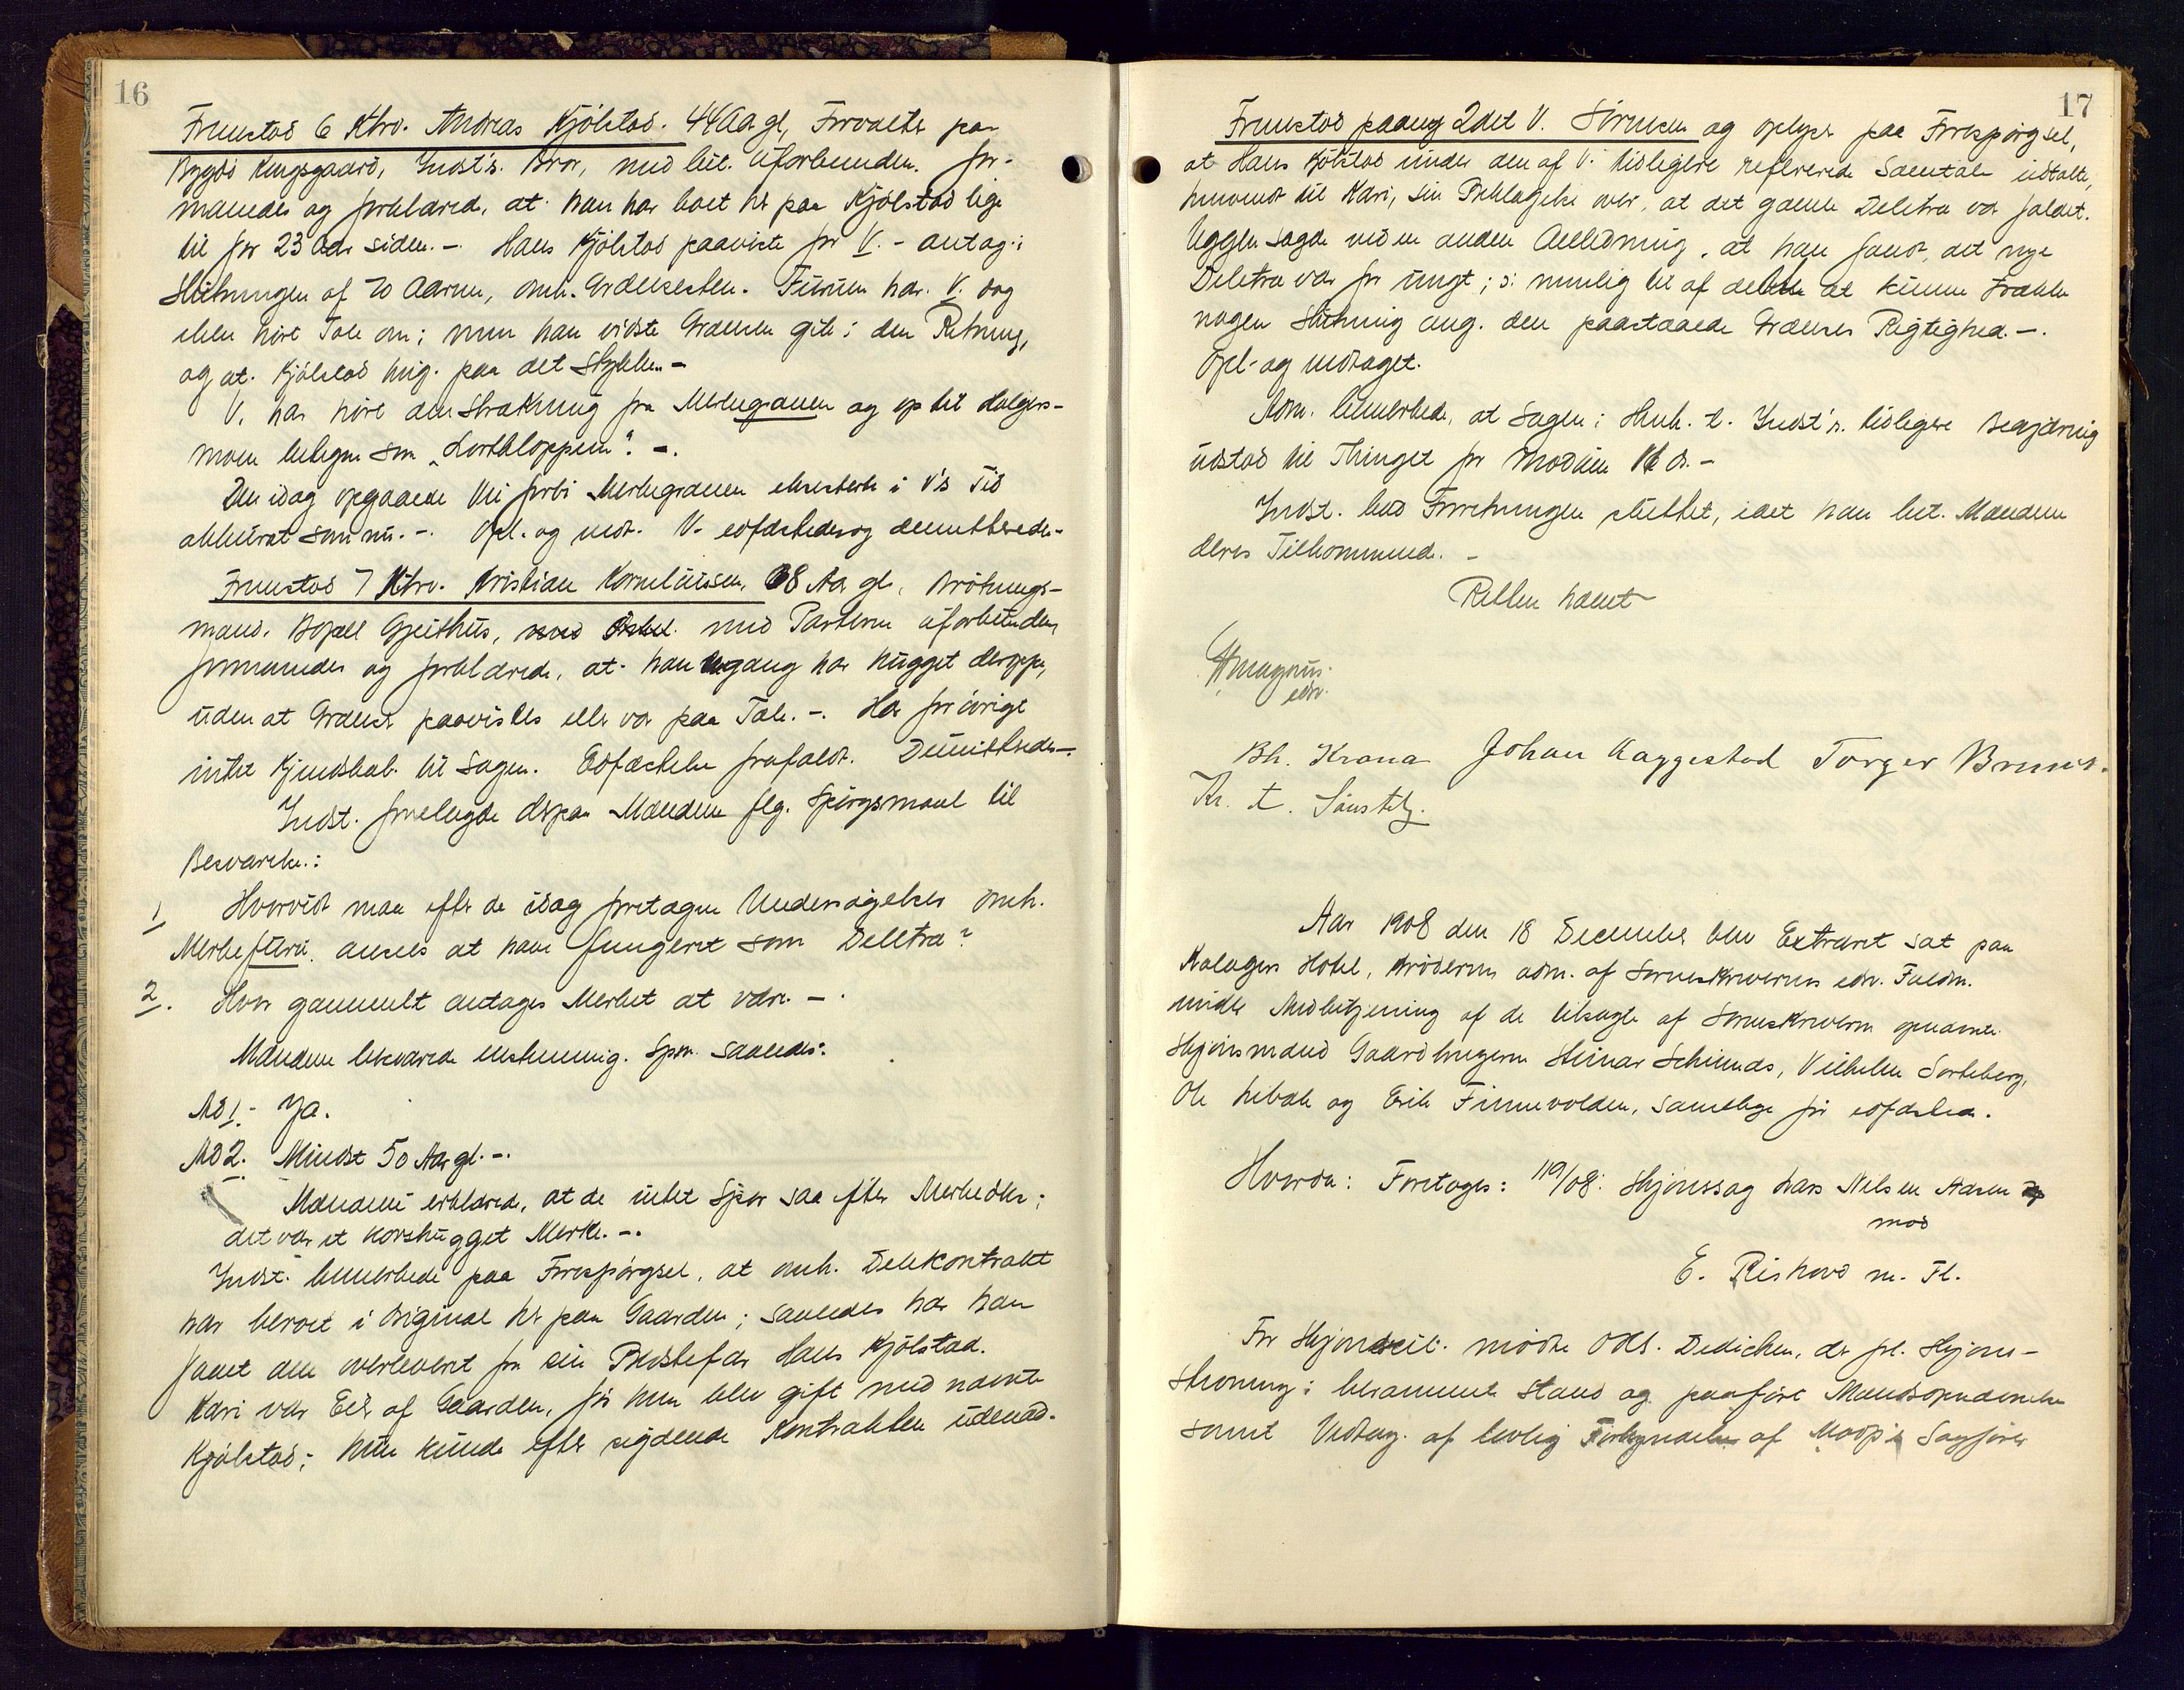 16
Fremstod 6 Ktrv. Andreas Kjölstad. 44 Aar gl, Forvalter paa
Bygdö Kongsgaard, Indst's. Bror, med Cit. uforbunden. for-
manedes og forklared, at han har boet her paa Kjölstad lige
til for 23 Aar siden. -. Hans Kjölstad paaviste for V. - antag. i
Slutningen af 70 Aarene, omh. Grændsesten. Furuen har V. dog
ikke hört Tale om; men han vidste Grændsen gik i den Retning,
og at Kjölstad hug. paa det Stykke. -
V. har hört den Strækning fra Merkegranen og op til Holgers-
moen betegne som "Lortkloppen". -.
Den idag opgaaede Vei forbi Merkegranen eksisterte i V's Tid
akkurat som nu. -. Opl. og vedt. V. edfæstedes og demitteredes.
Fremstod 7 Ktrv. Kristian Kornelüssen, 68 Aar gl, Brötnings-
mand, Bopæl Gjeithus, med Partern uforbunden,
formanedes og forklarede, at han engang har hugget deroppe,
uden at Grændser paavistes eller var paa Tale. -. Har for övrigt
intet Kjendskab til Sagen. Edfæstelse frafaldt. Dimitteredes -.
Indst. forelagde derpaa Mændene flg. Spörgsmaal til
Besvarelse.:
1 Hvorvidt maa efter de idag foretagne Undersögelser omh.
Merkefuru. ansees at have fungeret som Deletræ?
2. Hvor gammelt antages Merket at være. -.
Mændene besvarede enstemmig. Spm. saaledes:
Ad 1. - Ja.
Ad 2. Mindst 50 Aar gl. -.
Mændene erklærede, at de intet Spor saa efter Merkeöks;
det var et korshugget Merke. -.
Indst. bemerkede paa Forespörgsel, at omh. Delekontrakt
har beroet i Original her paa Gaarden; saaledes har han
faaet den overleveret fra sin Bedstefar Hans Kjölstad.
Kari var Eier af Gaarden, för hun blev gift med nævnte
Kjölstad; hun kunde efter sigende Kontrakten udenad.
17
Fremstod paany 2det V. Sörensen og oplyser paa Forespörgsel,
at Hans Kjölstad under den af V. tidligere refererede Samtale udtalte,
henvendt til Kari, sin Beklagelse over, at det gamle Deletræ var faldet.
Uggen sagde ved en anden Anledning, at han fandt, det nye
Deletræ var for ungt; ɔ: nemlig til af dette at kunne trække
nogen Slutning ang. den paastaaede Grændses Rigtighed. -.
Opl- og vedtaget.
Adm. bemerkede, at Sagen i Henh. t. Indst's. tidligere Begjæring
udstod til Thinget for Modum
Indst. bad Forretningen sluttet, idet han bet. Mændene
deres Tilkommende. -
Retten hævet
Magnus
edsv.
Bh. Krona Johan Aaggestad Torger
Kr. t.
Aar 1908 den 18 December blev Extraret sat paa
Kalagers Hotel, Kröderen adm. af Sorenskriverens edsv. Fuldm.
under Medbetjening af de tilsagte af Sorenskriveren opnævnte
Skjönsmænd Gaardbrugerne Steinar Schimdas, Vilhelm Sorteberg,
Ole Libak og Erik Finnevolden, samtlige för edfæstede.
Hvorda: Foretoges: 119/08: Skjönssag Lars Nilsen Aasen
mod
E. Rishovd m. Fl.
For Skjönsreit. mödte ORS. Dedichen, der frl. Skjöns-
stevning i berammet Stand og paafört Mændsopnævnelse
samt Vedtag. af lovlig Forkyndelse af Modp's Sagförer